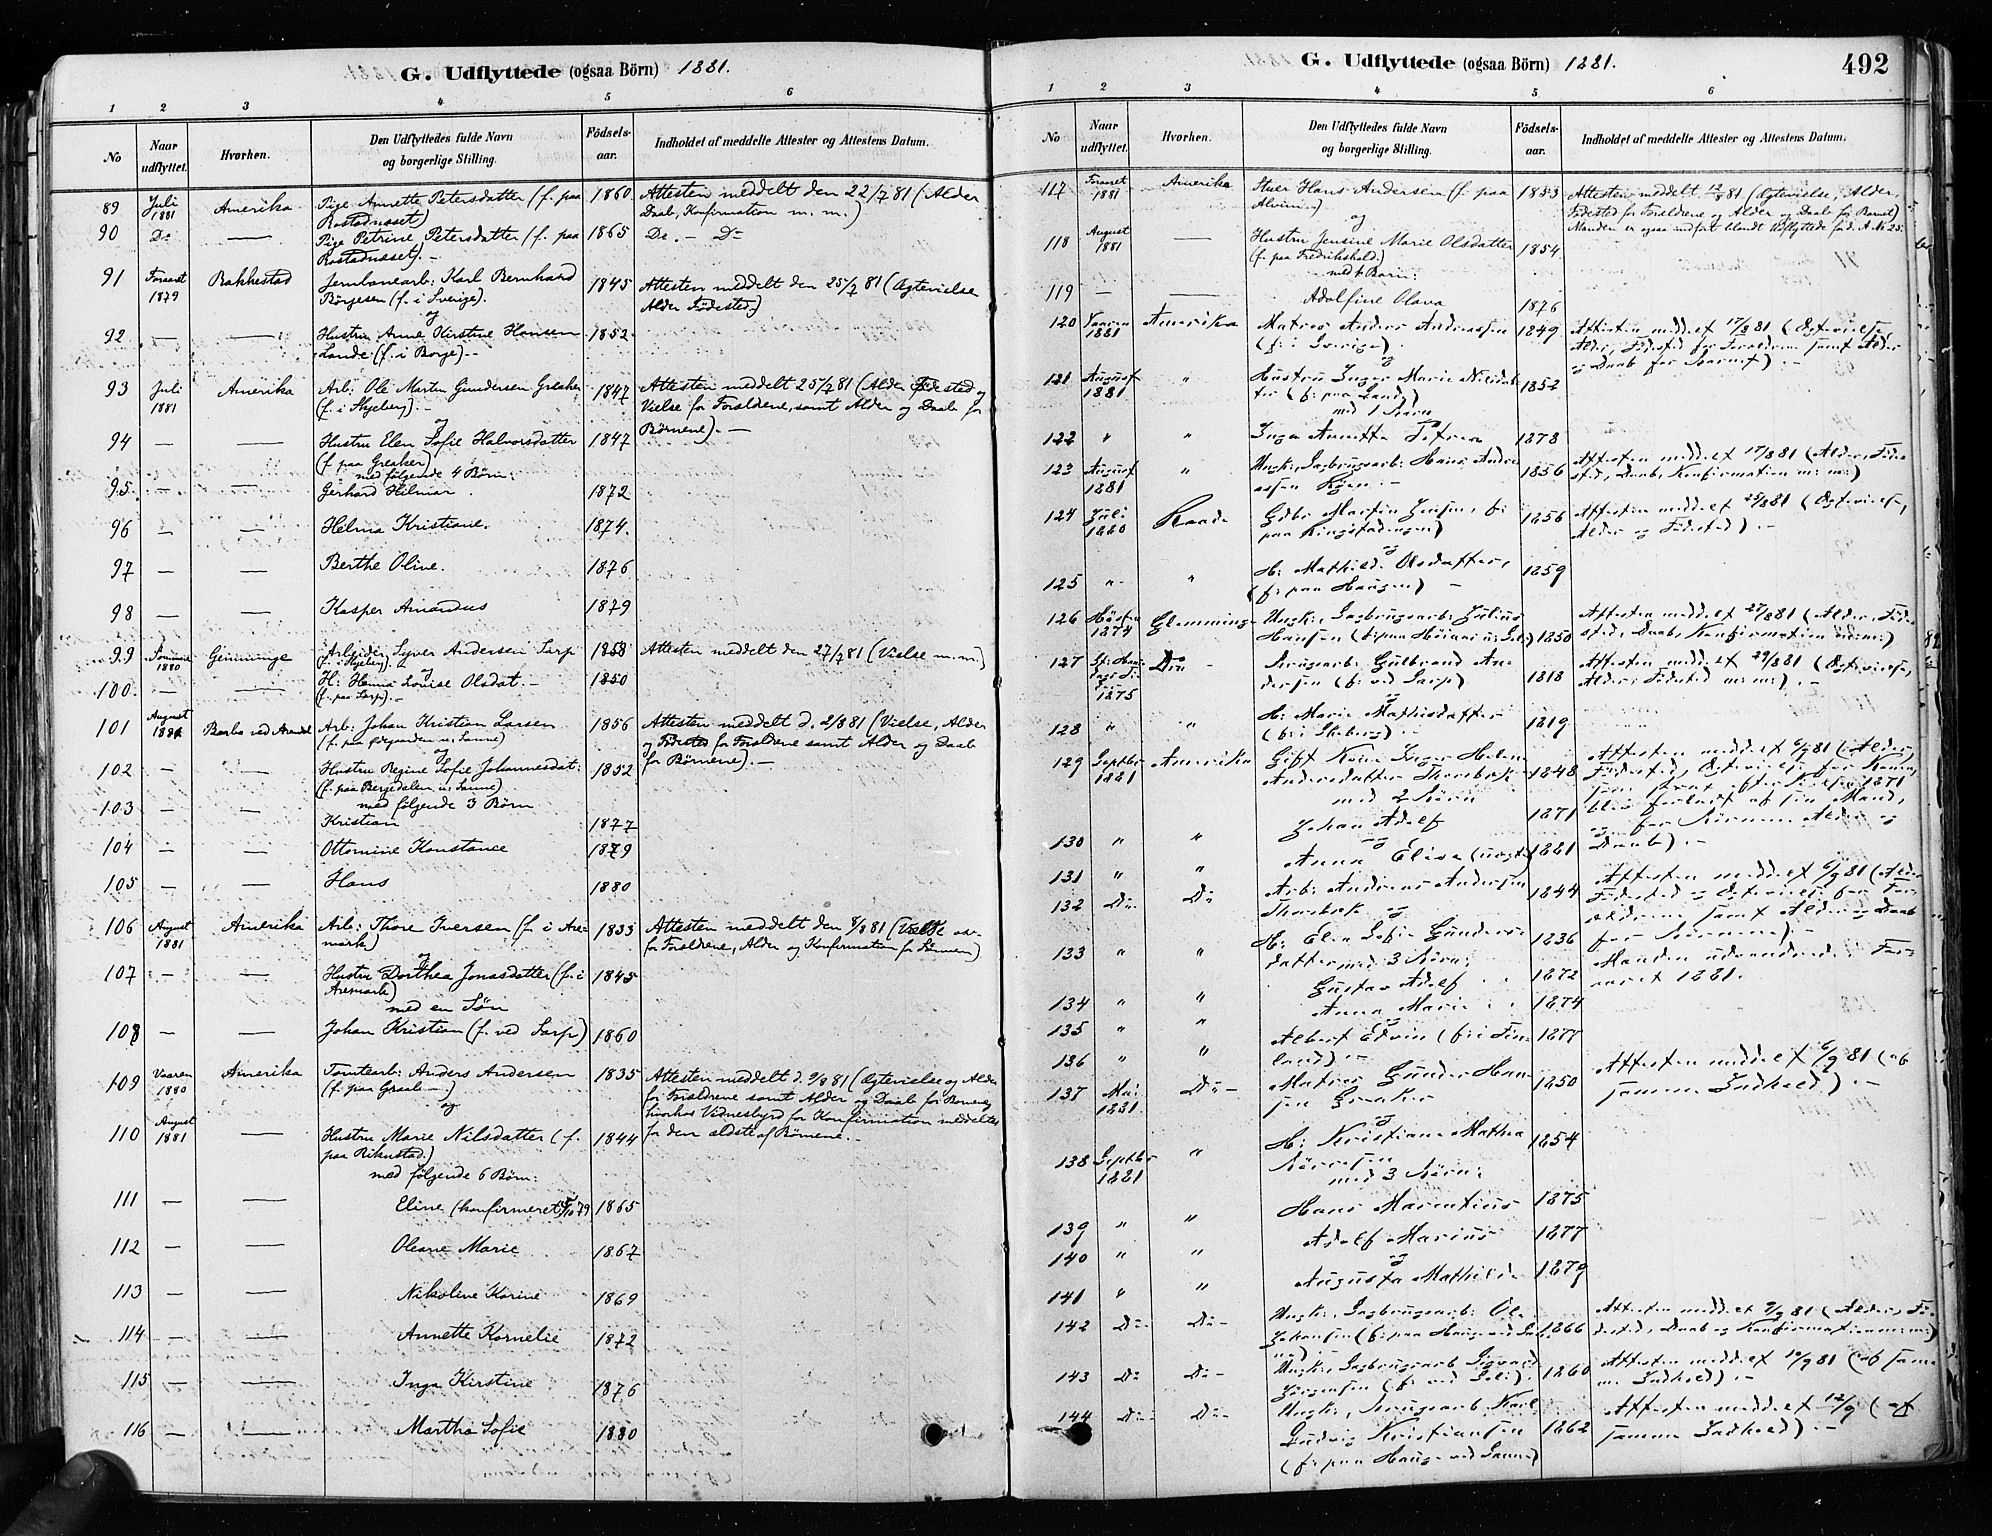 G. Udflyttede (ogsaa Börn) 1881.
1 2 3 4 5 6
No
Naar udflyttet.
Hvorhen.
Den Udflyttedes fulde Navn
og borgerlige Stilling.
Födsels-
aar.
Indholdet af meddelte Attester og Attestens Datum.
89 Juli 1881 Amerika Pige Annette Petersdatter (f. paa 1860 Attesten meddelt den 22/7 81 (Alder
Rostadnæset) Daab, Konfirmation m. m.)
90 Do — Pige Petrine Petersdatter (f. paa 1865 Do. — Do
Rostadnæset). —
91 Foraaret 1879 Rakkestad Jernbanearb: Karl Bernhard 1845 Attesten meddelt den 25/7 81 (Ægtevielse
Börgesen (f. i Sverige). Alder Födested.)
og
92 — — Hustru Anne Kirstine Hansen 1852
Lande (f. i Borge). —
93 Juli 1881 Amerika Arb: Ole Martin Gundersen Greaker 1847 Attesten meddelt 25/7 81 (Alder Födested og
(f. i Skjeberg). — Vielse for Forældrene, samt Alder og Daab for
og Börnene). —
94 — — Hustru Elen Sofie Halvorsdatter 1847
(f. paa Greaker)
med følgende 4 Børn:
95 — — Gerhard Hilmar. 1872
96 — — Helma Kristiane. 1874.
97 — — Berthe Oline. 1876
98 — — Kasper Amandus 1879
99 Sommer 1880 Glemminge Arbeider Syver Andersen Sarp 1858 Attesten meddelt den 27/7 81 (Vielse m. m.)
(f. i Skjeberg). og
100. — — H: Hanna Louise Olsdat. — 1850
(f. paa Sarp). —
101 August 1881 Barbo ved Arendal Arb: Johan Kristian Larsen 1856 Attesten meddelt d. 2/8 81 (Vielse, Alder
og og Födested for Forældrene samt Alder og Daab
102 — — Hustru Regine Sofie Johannesdat: 1852 for Børnene). —
(f. paa Bergedalen u: Sanne)
med følgende 3 Børn
103 — — Kristian 1877
104 — — Ottomine Konstance 1879
105 — — Hans 1880
106 August 1881 Amerika Arb: Thore Iversen (f. i Are- 1833 Attesten meddelt den 8/8 81 (Vielse
mark) for Forældrene, Alder og Konfirmation for Sönnen)
og
107 — — Hustru Dorthea Jonasdatter (f. i 1845
Aremark)
med en Søn
108 — — Johan Kristian (f. ved Sarp) 1860
109 Vaaren 1880 Amerika Tomtearb: Anders Andersen 1835 Attesten meddelt d. 9/8 81 (Ægtevielse og Alder
(f. paa Graab —) for Forældrene samt Alder og Daab for Børnene,
og hvorhos Vidnesbyrd for Konfirmation meddeltes
110 August 1881 — Hustru Marie Nilsdatter (f. 1844 for den ældste af Børnene. —
paa Rikustad.)
med følgende 6 Børn:
111 — — Eline (konfirmeret 79 1865
112 — — Oleane Marie 1867
113 — — Nikoline Karine 1869
114 — — Annette Kornelie 1872
115 — — Inga Kirstine 1876
116 — — Martha Sofie 1880
G. Udflyttede (ogsaa Börn) 1881. 492
1 2 3 4 5 6
No
Naar udflyttet.
Hvorhen.
Den Udflyttedes fulde Navn
og borgerlige Stilling.
Födsels-
aar.
Indholdet af meddelte Attester og Attestens Datum.
117 Foraaret 1881 Amerika Stuer Hans Andersen (f. paa 1853 Attesten meddelt 12/8 81 (Ægtevielse, Alder,
Alvim —) Födested for Forældrene og Alder og Daab for Barnet)
og Manden er ogsaa indfört blandt Udflyttede
118 August 1881 — Hustru Jensine Marie Olsdatter 1854
(f. paa Fredrikshald.)
med 1 Barn:
119 — — Adolfine Olava 1876
120 Vaaren 1881 Amerika Matros Anders Andreassen 1849 Attesten meddelt 17/8 81 (Ægtevielse,
(f: i Sverige). Alder, Födested for Forældrene samt Alder
og og Daab for Barnet). —
121 August 1881 " Hustru Inger Marie Nilsdat- 1852
ter (f: paa Lande)
med 1 Barn
122 " " Inga Annetta Petrea 1878
123 August 1881 " Ungk: Sagbrugsarb: Hans Andre- 1856 Attesten meddelt 17/8 81 (Alder, Föde-
assen — sted, Daab, Konfirmation m: m:)
124 Juli 1880 Raade Gdbr Martin Jensen, f: 1856 Attesten meddelt 25/8 81 (Ægtevielse,
paa Ringstadengen) Alder og Födested). —
og
125 " " H: Mathilde Olsdatter, 1859
(f: paa Haugen) —
126 Høsten 1874 Glemminge Ungk: Sagbrugsarb: Julius 1850 Attesten meddelt 27/8 81 (Alder, Föde-
Hansen (f: paa sted, Daab, Konfirmation m: m:)
127 1875 Do — Brugsarb: Gulbrand An- 1818 Attesten meddelt 29/8 81 (Ægtevielse,
dersen (f: ved Sarp) Alder, Födested m: m:). —
og
128 " " H: Marie Mathisdatter 1819
(f: i Skeberg). —
129 Septbr 1881 Amerika Gift Kone Inger Helene 1848 Attesten meddelt 6/9 81 (Alder,
Andersdatter Födested, Ægtevielse for Konen,
med 2 Børn som 1871
130 " " Johan Adolf 1871 blev forladt af sin Mand,
og og for Børnene Alder og
131 " " Anna Elise (uægte) 1881 Daab). —
132 Do — Do Arb: Andreas Andersen 1844 Attesten meddelt 6/9 81 (Alder
og Födested og Ægtevielse for For-
133 " " H: Elen Sofie Gunders- 1836 ældrene samt Alder og Daab
datter med 3 Börn: for Børnene). —
134 " " Gustav Adolf 1872 Manden udvandrede i For-
135 " " Anna Marie 1874 aaret 1881.
og
136 " " Albert Edvin (f: i Fin- 1877
land). —
137 Mai 1881 Do — Matros Gunder Han- 1850 Attesten meddelt 6/9 81 (af
sen Greaker samme Indhold). —
og
138 Septbr 1881 " H: Kristiane Mathea 1854
med 3 Børn:
139 " " Hans Marentius 1875
140 " " Adolf Marius 1877
og
141 " " Augusta Mathilde 1879
142 Do — Do — Ungk: Sagbrugsarb: Ole 1866 Attesten meddelt 9/9 81 (Alder, Fö-
Johansen (f: paa Hauge ved San- dested, Daab og Konfirmation m: m:)
ne). —
143 Do Do — Ungk: Sagbrugsarb Sigvard 1860 Attesten meddelt 10/9 81 (af sam-
Jörgensen (f: ved Soli). me Indhold). —
144 Do — Do — Ungk: Brugsarb. Karl 1862 Attesten meddelt 12/9 (af
Ludvig Kristiansen samme Indhold). —
(f: paa Hauge ved Sanne)